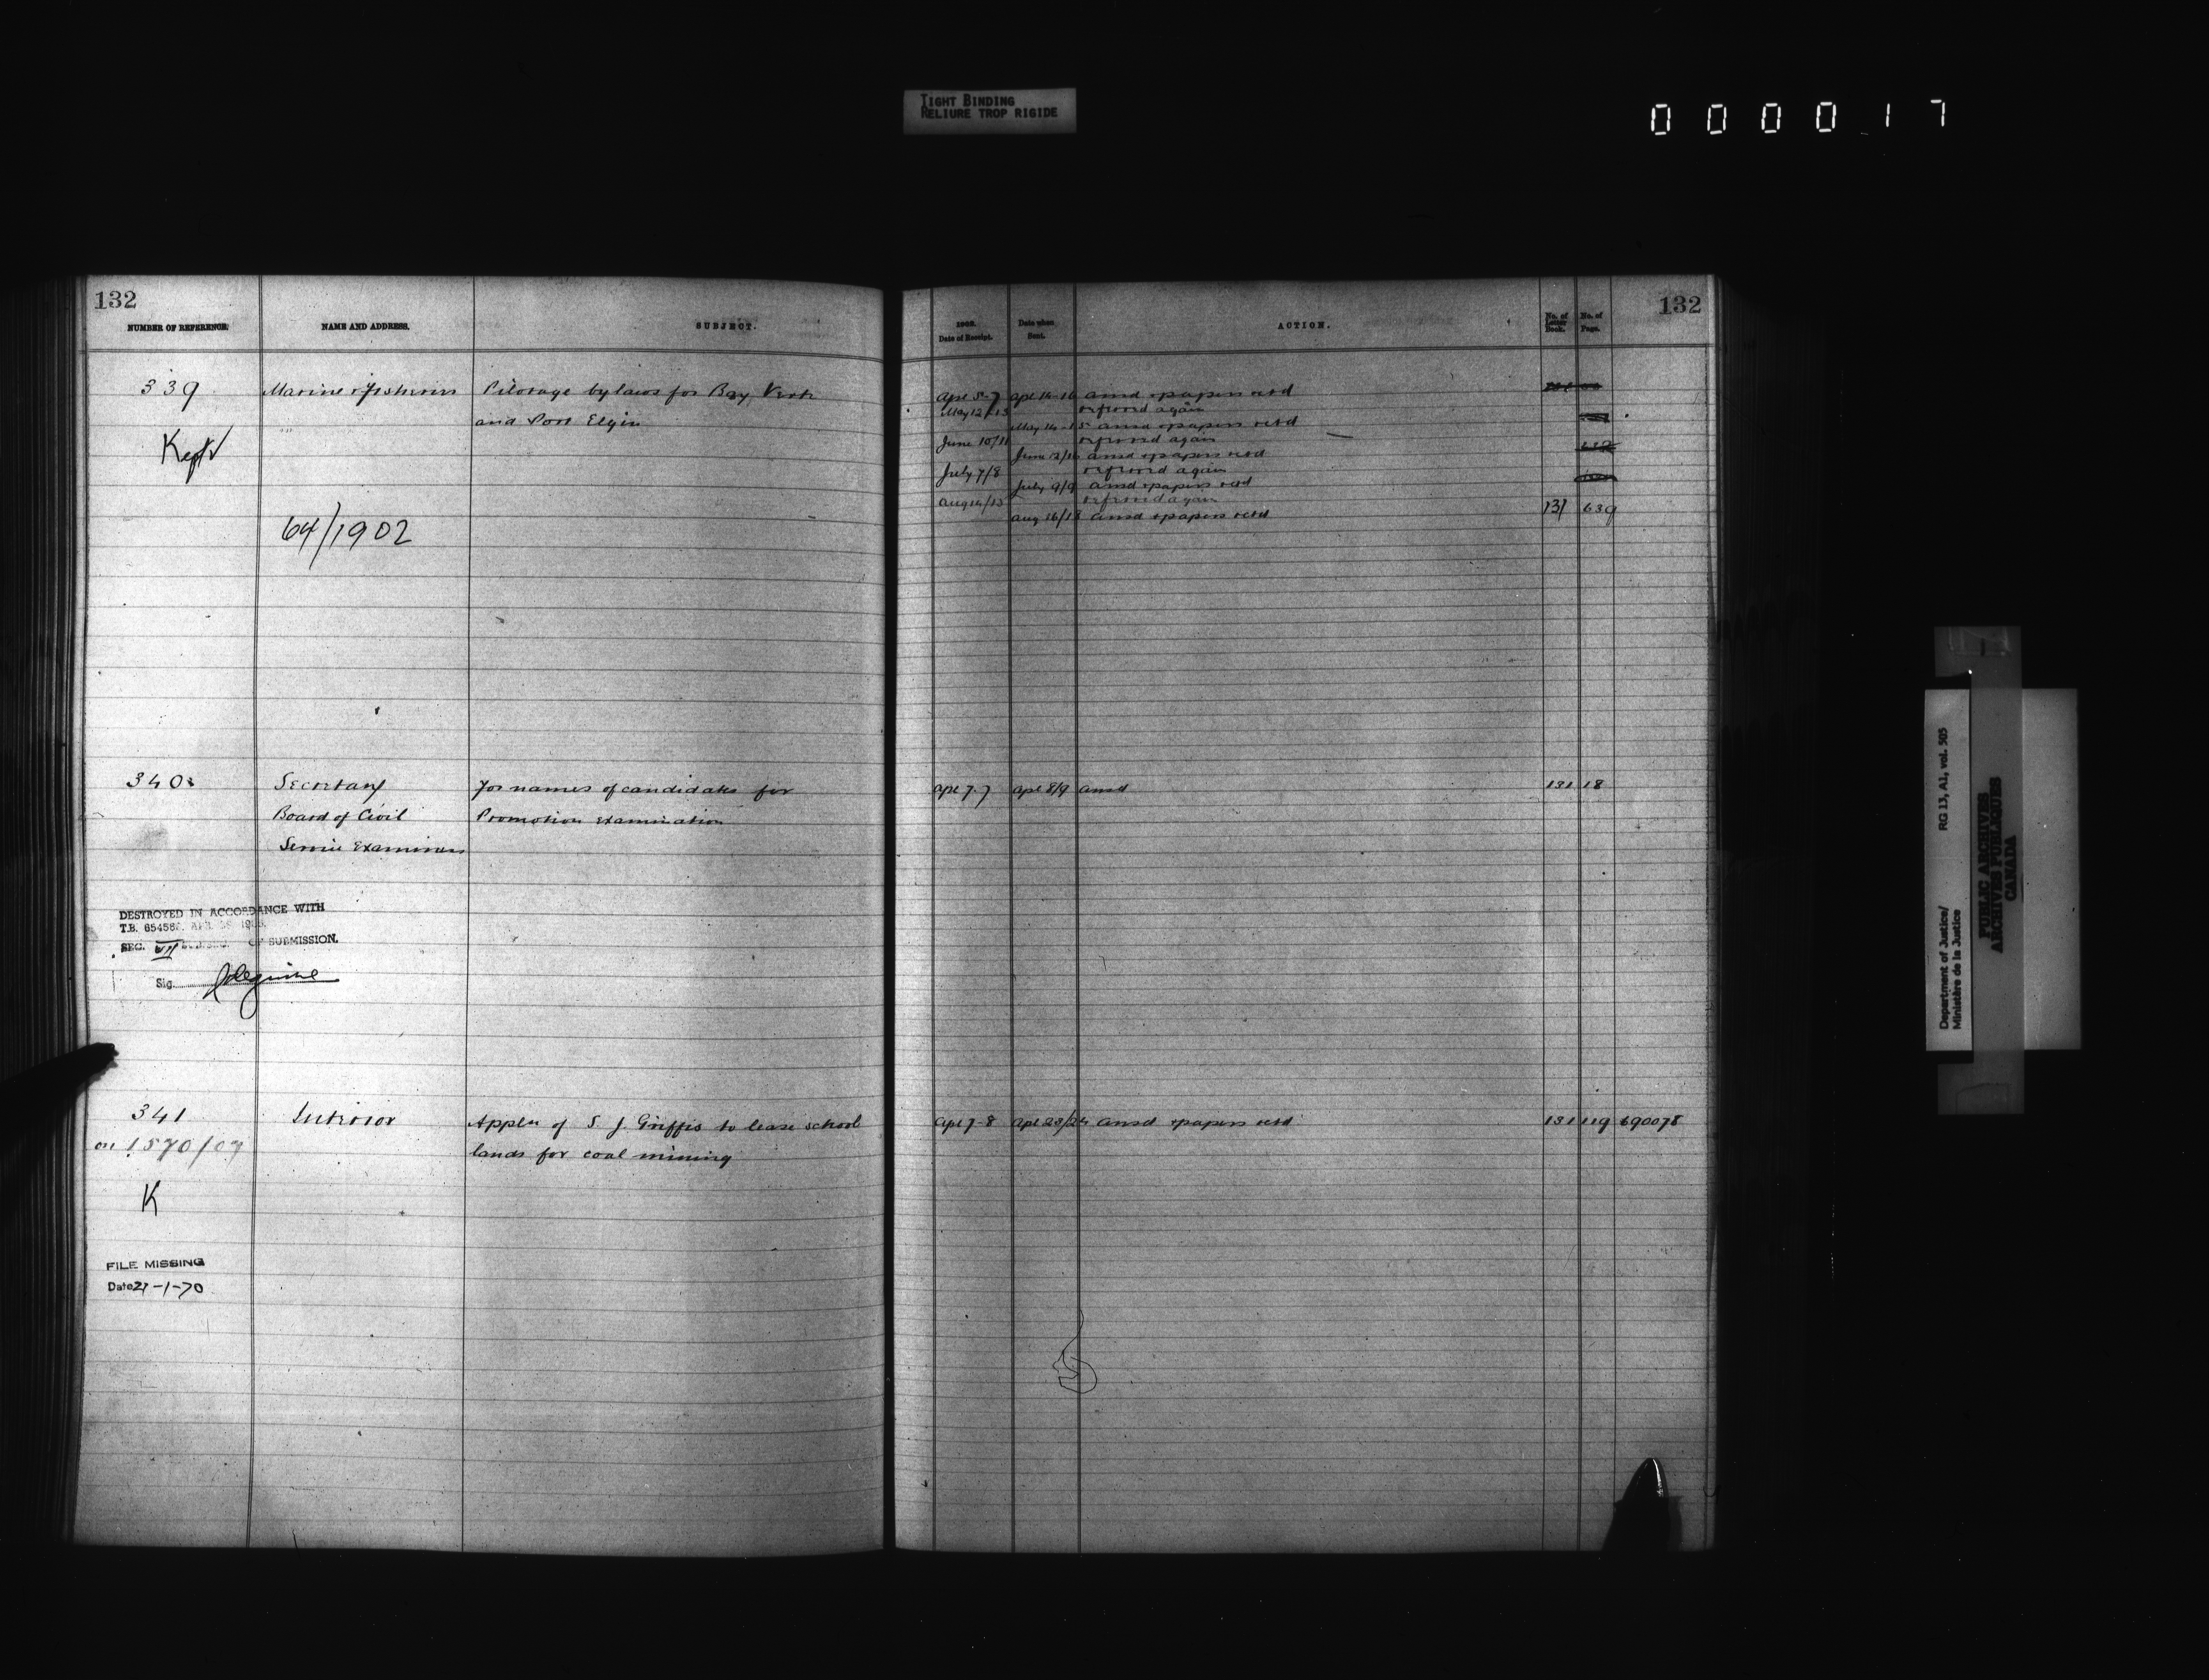 TIGHT BINDING
RELIURE TROP RIGIDE
0 0 0 0 1 7
132
NUMBER OF REFERENCE.
NAME AND ADDRESS.
SUBJECT.
339
Marine & Fisheries
Pilotage bylaws for Bay Verte
and Port Elgin
Kept
64/1902
340
Secretary
Board of Civil
Service Examiners
For names of candidates for
Promotion Examination
DESTROYED IN ACCORDANCE WITH
T.B. 65458
SEC. OF SUBMISSION.
Sig.
341
on 1570/07
K
Interior
Appln of S. J. Griffis to lease school
lands for coal mining
FILE MISSING
Date 21-1-70
132
Date of Receipt.
Date when
Sent.
ACTION.
No. of
Letter
Book.
No. of
Page.
Apl 5-7 Apl 14-16 ansd & papers retd
May 12/13 referred again
May 14-15 ansd & papers retd
June 10/11 referred again
June 12/16 ansd & papers retd
July 7/8 referred again
July 9/9 ansd & papers retd
Aug 14/15 referred again
Aug 16/18 ansd & papers retd 131 639
Apl 7-7 Apl 8/9 ansd 131 18
Apl 7-8 Apl 23/24 ansd & papers retd 131 119 690078
RG 13, A1, vol. 505
Department of Justice/
Ministère de la Justice
PUBLIC ARCHIVES
ARCHIVES PUBLIQUES
CANADA